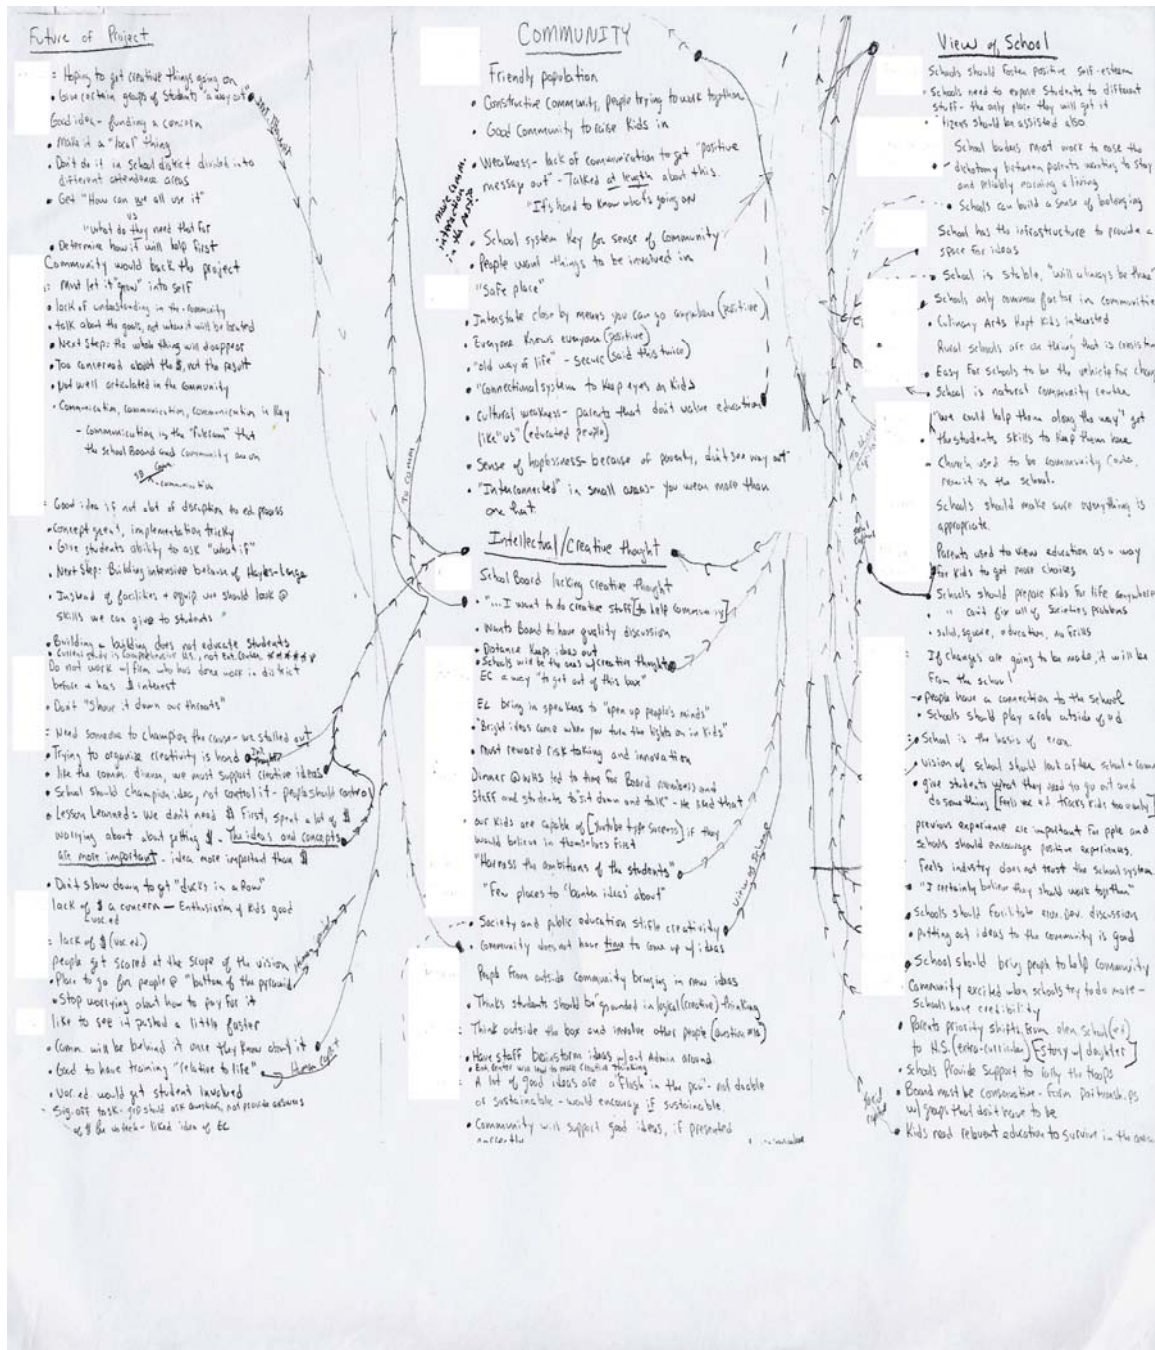 Future of Project
= Hoping to get creative things going on
• Give certain groups of Students "a way out"
Good idea - funding a concern
• Make it a "local" thing
• Don't do it in School district divided into
different attendance areas
• Get "How can we all use it"
vs
"what do they need that for
• Determine how it will help first
Community would back the project
= Must let it "grow" into self
• lack of understanding in the community
• talk about the goals, not where it will be located
• Next Step: the whole thing will disappear
• Too concerned about the $, not the result
• not well articulated in the community
• Communication, communication, communication is Key
- Communication is the "Fulcrum" that
the School Board and Community are on
= Good idea if not alot of disruption to ed process
• Concept great, implementation tricky
• Give students ability to ask "what if"
• Next Step: Building intensive because of
• Instead of facilities + equip we should look @
skills we can give to students "
• Building a building does not educate students
Do not work w/ firm who has done work in district
before + has $ interest
• Don't "Shove it down our throats"
= Need someone to champion the cause - we stalled out
• Trying to organize creativity is hard
• like the comm. dinner, we must support creative ideas
• School should champion idea, not control it - people should control
• Lesson Learned: We don't need $ First, spent a lot of $
worrying about about getting $. The ideas and concepts
are more important - idea more important than $
• Don't slow down to get "ducks in a Row"
lack of $ a concern - Enthusiasm of kids good
voc. ed
= lack of $ (voc. ed.)
people get scared at the scope of the vision
• Place to go for people @ "bottom of the pyramid"
• Stop worrying about how to pay for it
like to see it pushed a little faster
• Comm. will be behind it once they know about it
• Good to have training "relative to life"
• Voc. ed. would get student involved
COMMUNITY
Friendly population
• Constructive community, people trying to work together
• Good Community to raise Kids in
• Weakness - lack of communication to get "positive
message out" - Talked at length about this
"It's hard to Know what's going on
• School system Key for sense of Community
• People want things to be involved in
"Safe place"
• Interstate close by means you can go anywhere (positive)
• Everyone Knows everyone (positive)
• "old way of life" - Secure (said this twice)
• "Connectional system to Keep eyes on Kids
• cultural weakness - parents that don't value education
like "us" (educated people)
• Sense of hoplessness - because of poverty, don't see way out
• "Interconnected" in small areas - you wear more than
one hat.
Intellectual/Creative thought
School Board lacking creative thought
• "...I want to do creative stuff [to help community]
• Wants Board to have quality discussion
• Distance Keeps ideas out
• Schools will be the area of creative thought
EC a way "to get out of this box"
EC bring in speakers to "open up people's minds"
• "Bright ideas come when you turn the lights on in Kids"
• must reward risk taking and innovation
Dinner @ WHS led to time for Board members and
Staff and students to "sit down and talk" - He liked that
• our Kids are capable of [Youtube type success] if they
would believe in themselves first
"Harness the ambitions of the students"
"Few places to 'banter ideas' about"
• Society and public education stifle creativity
• Community does not have time to come up w/ ideas
People from outside community bringing in new ideas
• Thinks students should be "grounded in logical (creative) thinking
= Think outside the box and involve other people
• Have staff brainstorm ideas w/out Admin around
A lot of good ideas are a "Flash in the pan" - not doable
or sustainable - would encourage if sustainable.
• Community will support good ideas, if presented
correctly
View of School
Schools should foster positive self-esteem
• Schools need to expose Students to different
stuff - the only place they will get it
should be assisted also
School must work to ease the
dichotomy between parents wanting to stay
and reliably earning a living
• Schools can build a sense of belonging
School has the infrastructure to provide a
space for ideas
• School is stable, "will always be there"
Schools only common factor in communities
• Culinary Arts Kept kids interested
Rural schools are on thing that is
• Easy for Schools to be the vehicle for
• School is natural community center
"We could help them along the way" get
the students skills to Keep them here
• Church used to be community
now it is the school.
Schools should make sure everything is
appropriate.
Parents used to view education as a way
for Kids to get more choices
• Schools should prepare Kids for life anywhere
" can't fix all of societies problems
• solid, square, education, no frills
= If changes are going to be made, it will be
From the school
- people have a connection to the School
• Schools should play a role outside of ed
• School is the basis of econ.
• vision of school should look after school + comm
• give students what they need to go out and
do something
previous experience are important for pple and
schools should encourage positive experiences.
Feels industry does not trust the school system.
• "I certainly believe they should work together"
• Schools should facilitate econ. dev. discussion
• putting out ideas to the community is good
• School should bring people to help community
Community excited when schools try to do more -
Schools have credibility
• Parents priority shifts from elem School (ed)
to H.S. (extra-curricular) [Story w/ daughter]
• Schools Provide Support to rally the troops
• Board must be conservative - form partnerships
w/ groups that don't have to be
• Kids need relevant education to survive in the
more comm.
interaction
in the past?
To comm
View of School
Human capital
Social
capital